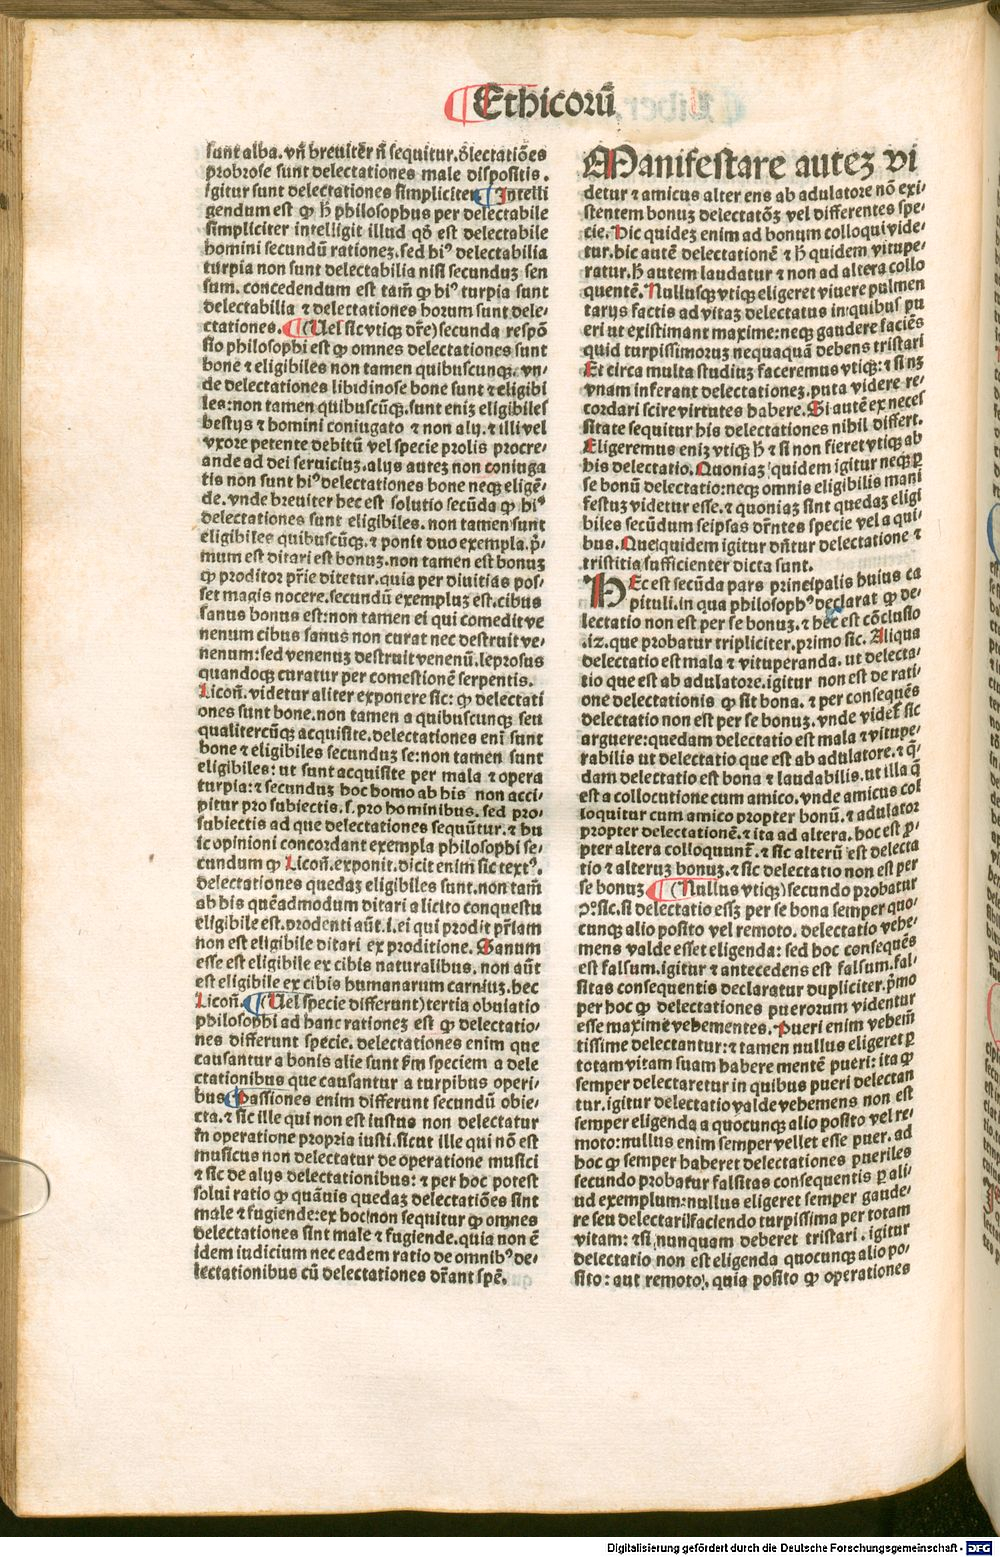 Ethicorū
sunt alba. vn̄ breuiter̄ n̄ sequitur. dlectatiões
probrose sunt delectationes male dispositis.
igitur sunt delectationes simpliciter. ¶ Intelli
gendum est ꝙ h̄ philosophus per delectabile
simpliciter intelligit illud qd̄ est delectabile
homini secundū rationeꝫ. sed hiꝰ delectabilia
turpia non sunt delectabilia nisi secunduꝫ sen
sum. concedendum est tam̄ ꝙ hiꝰ turpia sunt
delectabilia ⁊ delectationes horum sunt dele-
ctationes. ¶ (Uel sic vtiqꝫ dr̄e) secunda respō
sio philosophi est ꝙ omnes delectationes sunt
bone ⁊ eligibiles non tamen quibuscunqꝫ. vn-
de delectationes libidinose bone sunt ⁊ eligibi
les: non tamen quibuscūqꝫ. sunt eniꝫ eligibiles
bestijs ⁊ homini coniugato ⁊ non alij. ⁊ illi vel
vxore petente debitū vel specie prolis procre-
ande ad dei seruiciuꝫ. alijs auteꝫ non coniuga
tis non sunt hiꝰ delectationes bone neqꝫ eligē-
de. vnde breuiter hec est solutio secūda ꝙ hiꝰ
delectationes sunt eligibiles. non tamen sunt
eligibiles quibuscūqꝫ. ⁊ ponit duo exempla. p̄-
mum est ditari est bonuꝫ. non tamen est bonuꝫ
ꝙ proditor pr̄ie ditetur. quia per diuitias pos-
set magis nocere. secundū exempluꝫ est. cibus
sanus bonus est: non tamen ei qui comedit ve
nenum cibus sanus non curat nec destruit ve-
nenum: sed venenuꝫ destruit venenū. leprosus
quandoqꝫ curatur per comestionē serpentis.
Licoñ. videtur aliter exponere sic: ꝙ delectati
ones sunt bone. non tamen a quibuscunqꝫ seu
qualitercūqꝫ acquisite. delectationes enī sunt
bone ⁊ eligibiles secunduꝫ se: non tamen sunt
eligibiles: ut sunt acquisite per mala ⁊ opera
turpia: ⁊ secunduꝫ hoc homo ab his non acci-
pitur pro subiectis. s. pro hominibus. sed pro-
subiectis ad que delectationes sequūtur. ⁊ hu
ic opinioni concordant exempla philosophi se-
cundum ꝙ Licoñ. exponit. dicit enim sic textꝰ.
delectationes quedaꝫ eligibiles sunt. non tam̄
ab his quēadmodum ditari a licito conquestu
eligibile est. prodenti aūt. i. ei qui prodit pr̄iam
non est eligibile ditari ex proditione. Sanum
esse est eligibile ex cibis naturalibus. non aūt
est eligibile ex cibis humanarum carniuꝫ. hec
Licoñ. ¶ (Uel specie differunt) tertia obuiatio
philosophi ad hanc rationeꝫ est ꝙ delectatio-
nes differunt specie. delectationes enim que
causantur a bonis alie sunt s̄m speciem a dele
ctationibus que causantur a turpibus operi-
bus. ¶ Passiones enim differunt secundū obie-
cta. ⁊ sic ille qui non est iustus non delectatur
in operatione propria iusti. sicut ille qui nō est
musicus non delectatur de operatione musici
⁊ sic de alijs delectationibus: ⁊ per hoc potest
solui ratio ꝙ quāuis quedaꝫ delectatiōes sint
male ⁊ fugiende: ex hoc non sequitur ꝙ omnes
delectationes sint male ⁊ fugiende. quia non ē
idem iudicium nec eadem ratio de omnibꝰ de-
lectationibus cū delectationes dr̄ant spē.
Manifestare auteꝫ vi
detur ⁊ amicus alter ens ab adulatore nō exi-
stentem bonuꝫ delectatōꝫ vel differentes spe-
cie. Hic quideꝫ enim ad bonum colloqui vide-
tur. hic autē delectationē ⁊ h̄ quidem vitupe-
ratur. h̄ autem laudatur ⁊ non ad altera collo
quentē. Nullusqꝫ vtiqꝫ eligeret viuere pulmen
tarijs factis ad vitaꝫ delectatus in quibus pu
eri ut existimant maxime: neqꝫ gaudere faciēs
quid turpissimoruꝫ nequaquā debens tristari
Et circa multa studiuꝫ faceremus vtiqꝫ: ⁊ si nꝫ
vnam inferant delectationeꝫ. puta videre re-
cordari scire virtutes habere. Si autē ex neces
sitate sequitur his delectationes nihil differt.
Eligeremus eniꝫ vtiqꝫ h̄ ⁊ si non fieret vtiqꝫ ab
his delectatio. Quoniaꝫ quidem igitur neqꝫ ꝑ
se bonū delectatio: neqꝫ omnis eligibilis mani
festuꝫ videtur esse. ⁊ quoniaꝫ sint quedaꝫ eligi
biles secūdum seipsas dr̄ntes specie vel a qui-
bus. Que quidem igitur dn̄tur delectatione ⁊
tristitia sufficienter dicta sunt.
HEc est secūda pars principalis huius ca
pituli. in qua philosophꝰ declarat ꝙ de-
lectatio non est per se bonuꝫ. ⁊ hec est cōclusio
.iz. que probatur tripliciter. primo sic. Aliqua
delectatio est mala ⁊ vituperanda. ut delecta-
tio que est ab adulatore. igitur non est de rati-
one delectationis ꝙ sit bona. ⁊ per consequēs
delectatio non est per se bonuꝫ. vnde videt̄ sic
arguere: quedam delectatio est mala ⁊ vitupe-
rabilis ut delectatio que est ab adulatore. ⁊ q̄-
dam delectatio est bona ⁊ laudabilis. ut illa q̄
est a collocutione cum amico. vnde amicus col
loquitur cum amico propter bonū. ⁊ adulator
propter delectationē. ⁊ ita ad altera. hoc est ꝓ-
pter altera colloquunt̄. ⁊ sic alterū est delecta
tio ⁊ alteruꝫ bonuꝫ. ⁊ sic delectatio non est per
se bonuꝫ ¶ (Nullus vtiqꝫ) secundo probatur
ꝓꝰ. sic. si delectatio essꝫ per se bona semper quo-
cunqꝫ alio posito vel remoto. delectatio vehe-
mens valde esset eligenda: sed hoc consequēs
est falsum. igitur ⁊ antecedens est falsum. fal-
sitas consequentis declaratur dupliciter. p̄mo
per hoc ꝙ delectationes puerorum videntur
esse maxime vehementes. Pueri enim vehem̄
tissime delectantur: ⁊ tamen nullus eligeret ꝑ
totam vitam suam habere mentē pueri: ita ꝙ
semper delectaretur in quibus pueri delectan
tur. igitur delectatio valde vehemens non est
semper eligenda a quocunqꝫ alio posito vel re-
moto: nullus enim semper vellet esse puer. ad
hoc ꝙ semper haberet delectationes pueriles
secundo probatur falsitas consequentis ꝑ ali-
ud exemplum: nullus eligeret semper gaude-
re seu delectari faciendo turpissima per totam
vitam: ⁊ si nunquam deberet tristari. igitur
delectatio non est eligenda quocunqꝫ alio po-
sito: aut remoto. quia posito ꝙ operationes
Digitalisierung gefördert durch die Deutsche Forschungsgemeinschaft - DFG